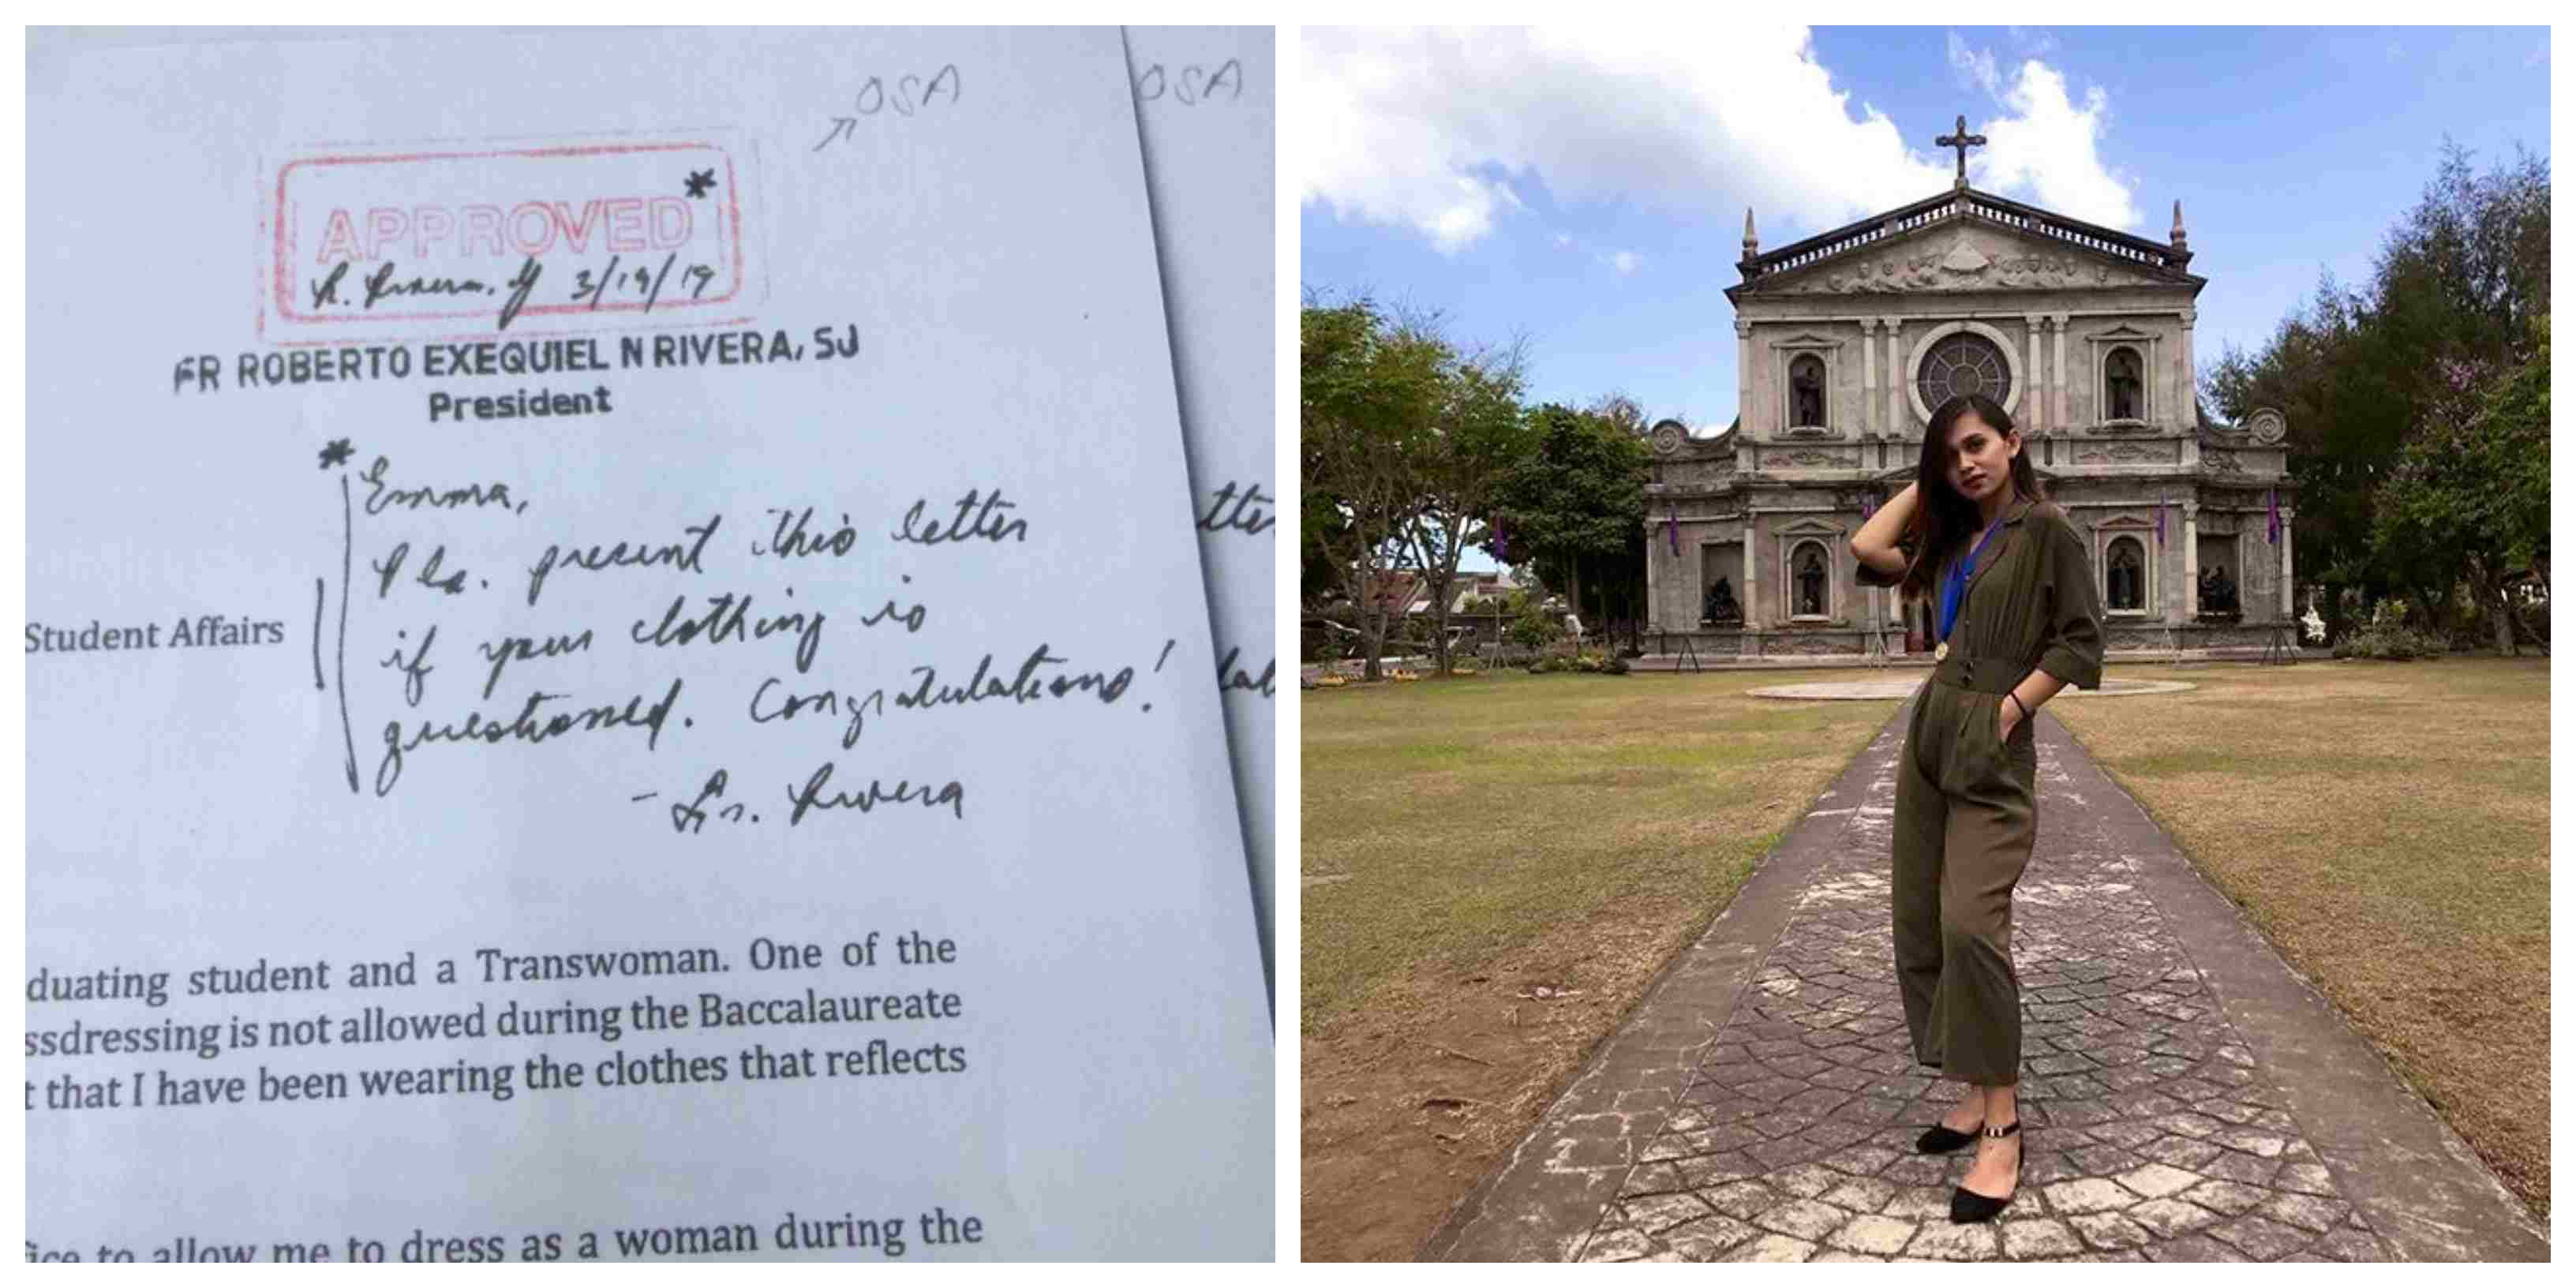 OSA
OSA
APPROVED*
R. Rivera, SJ 3/19/19
FR ROBERTO EXEQUIEL N RIVERA, SJ
President
* Emma,
Pls. present this letter
if your clothing is
questioned. Congratulations!
- Fr. Rivera
Student Affairs
duating student and a Transwoman. One of the
ssdressing is not allowed during the Baccalaureate
t that I have been wearing the clothes that reflects
ice to allow me to dress as a woman during the